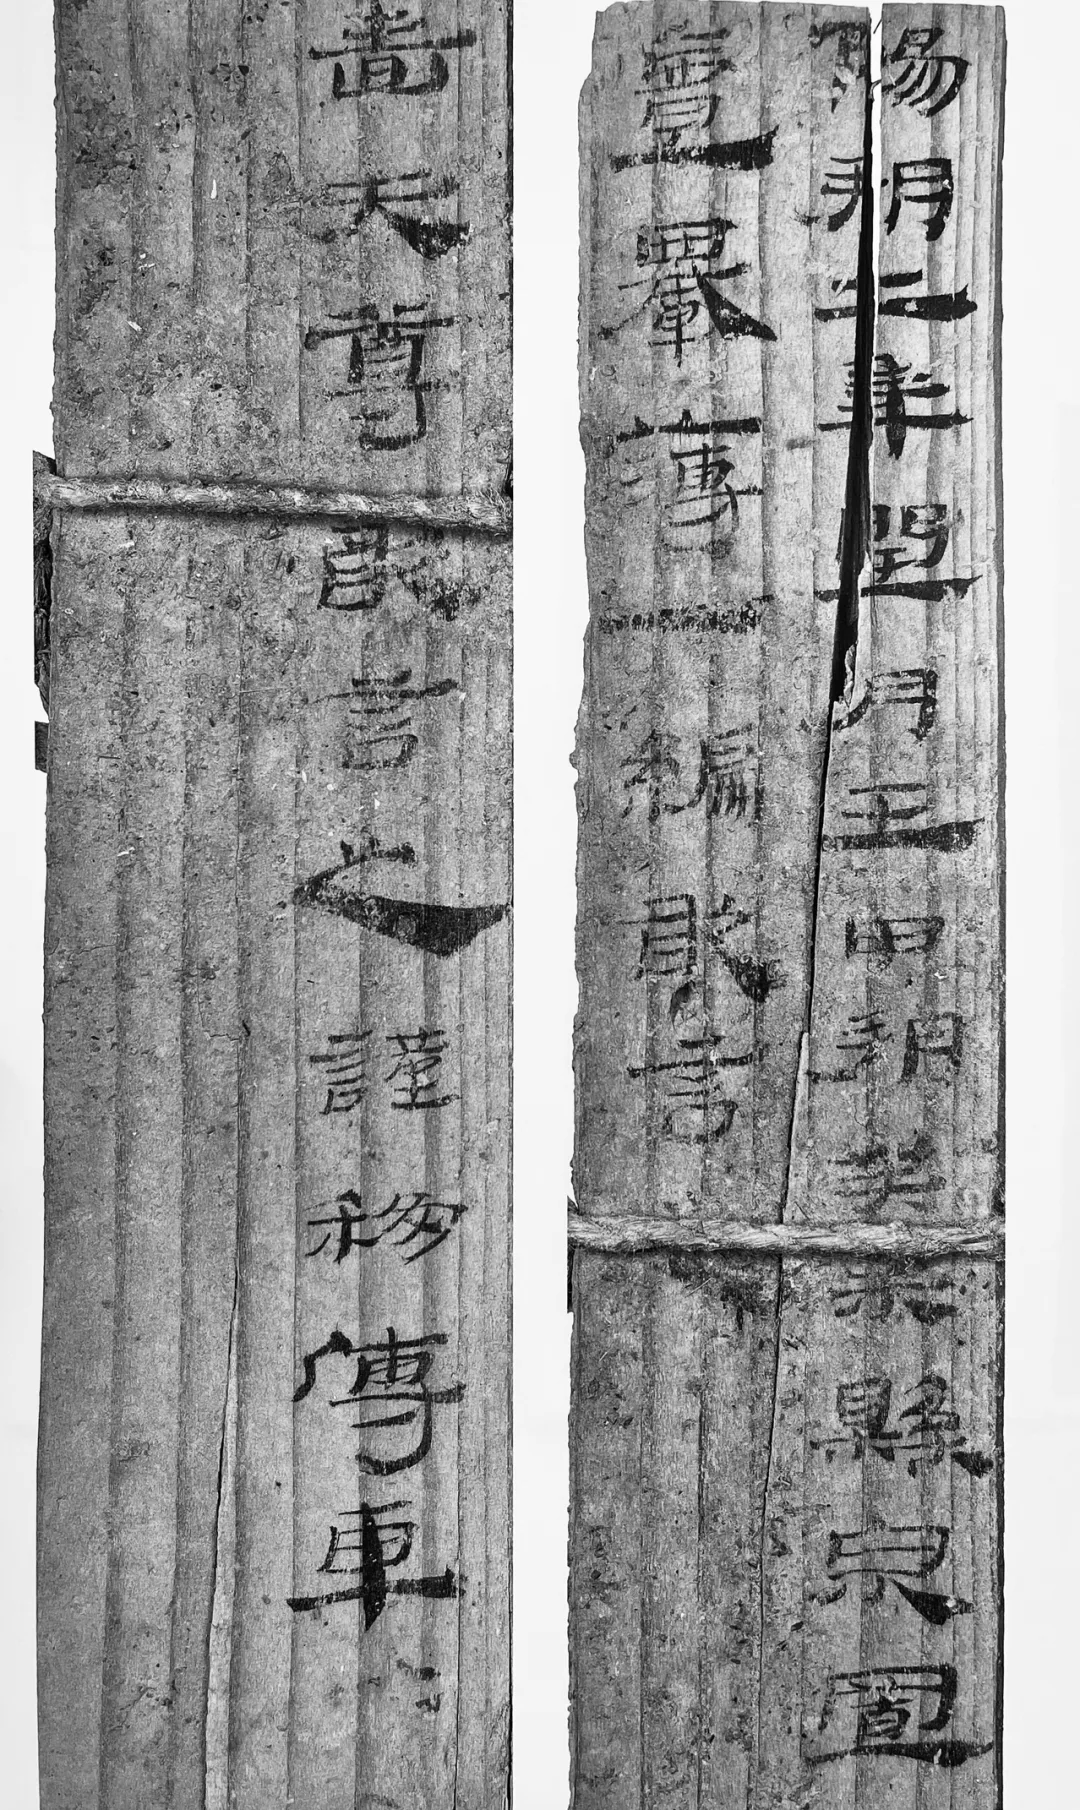 陽朔二年閏月壬申朔癸未縣泉置
嗇夫尊敢言之謹移傳車
亶轝薄一編敢言